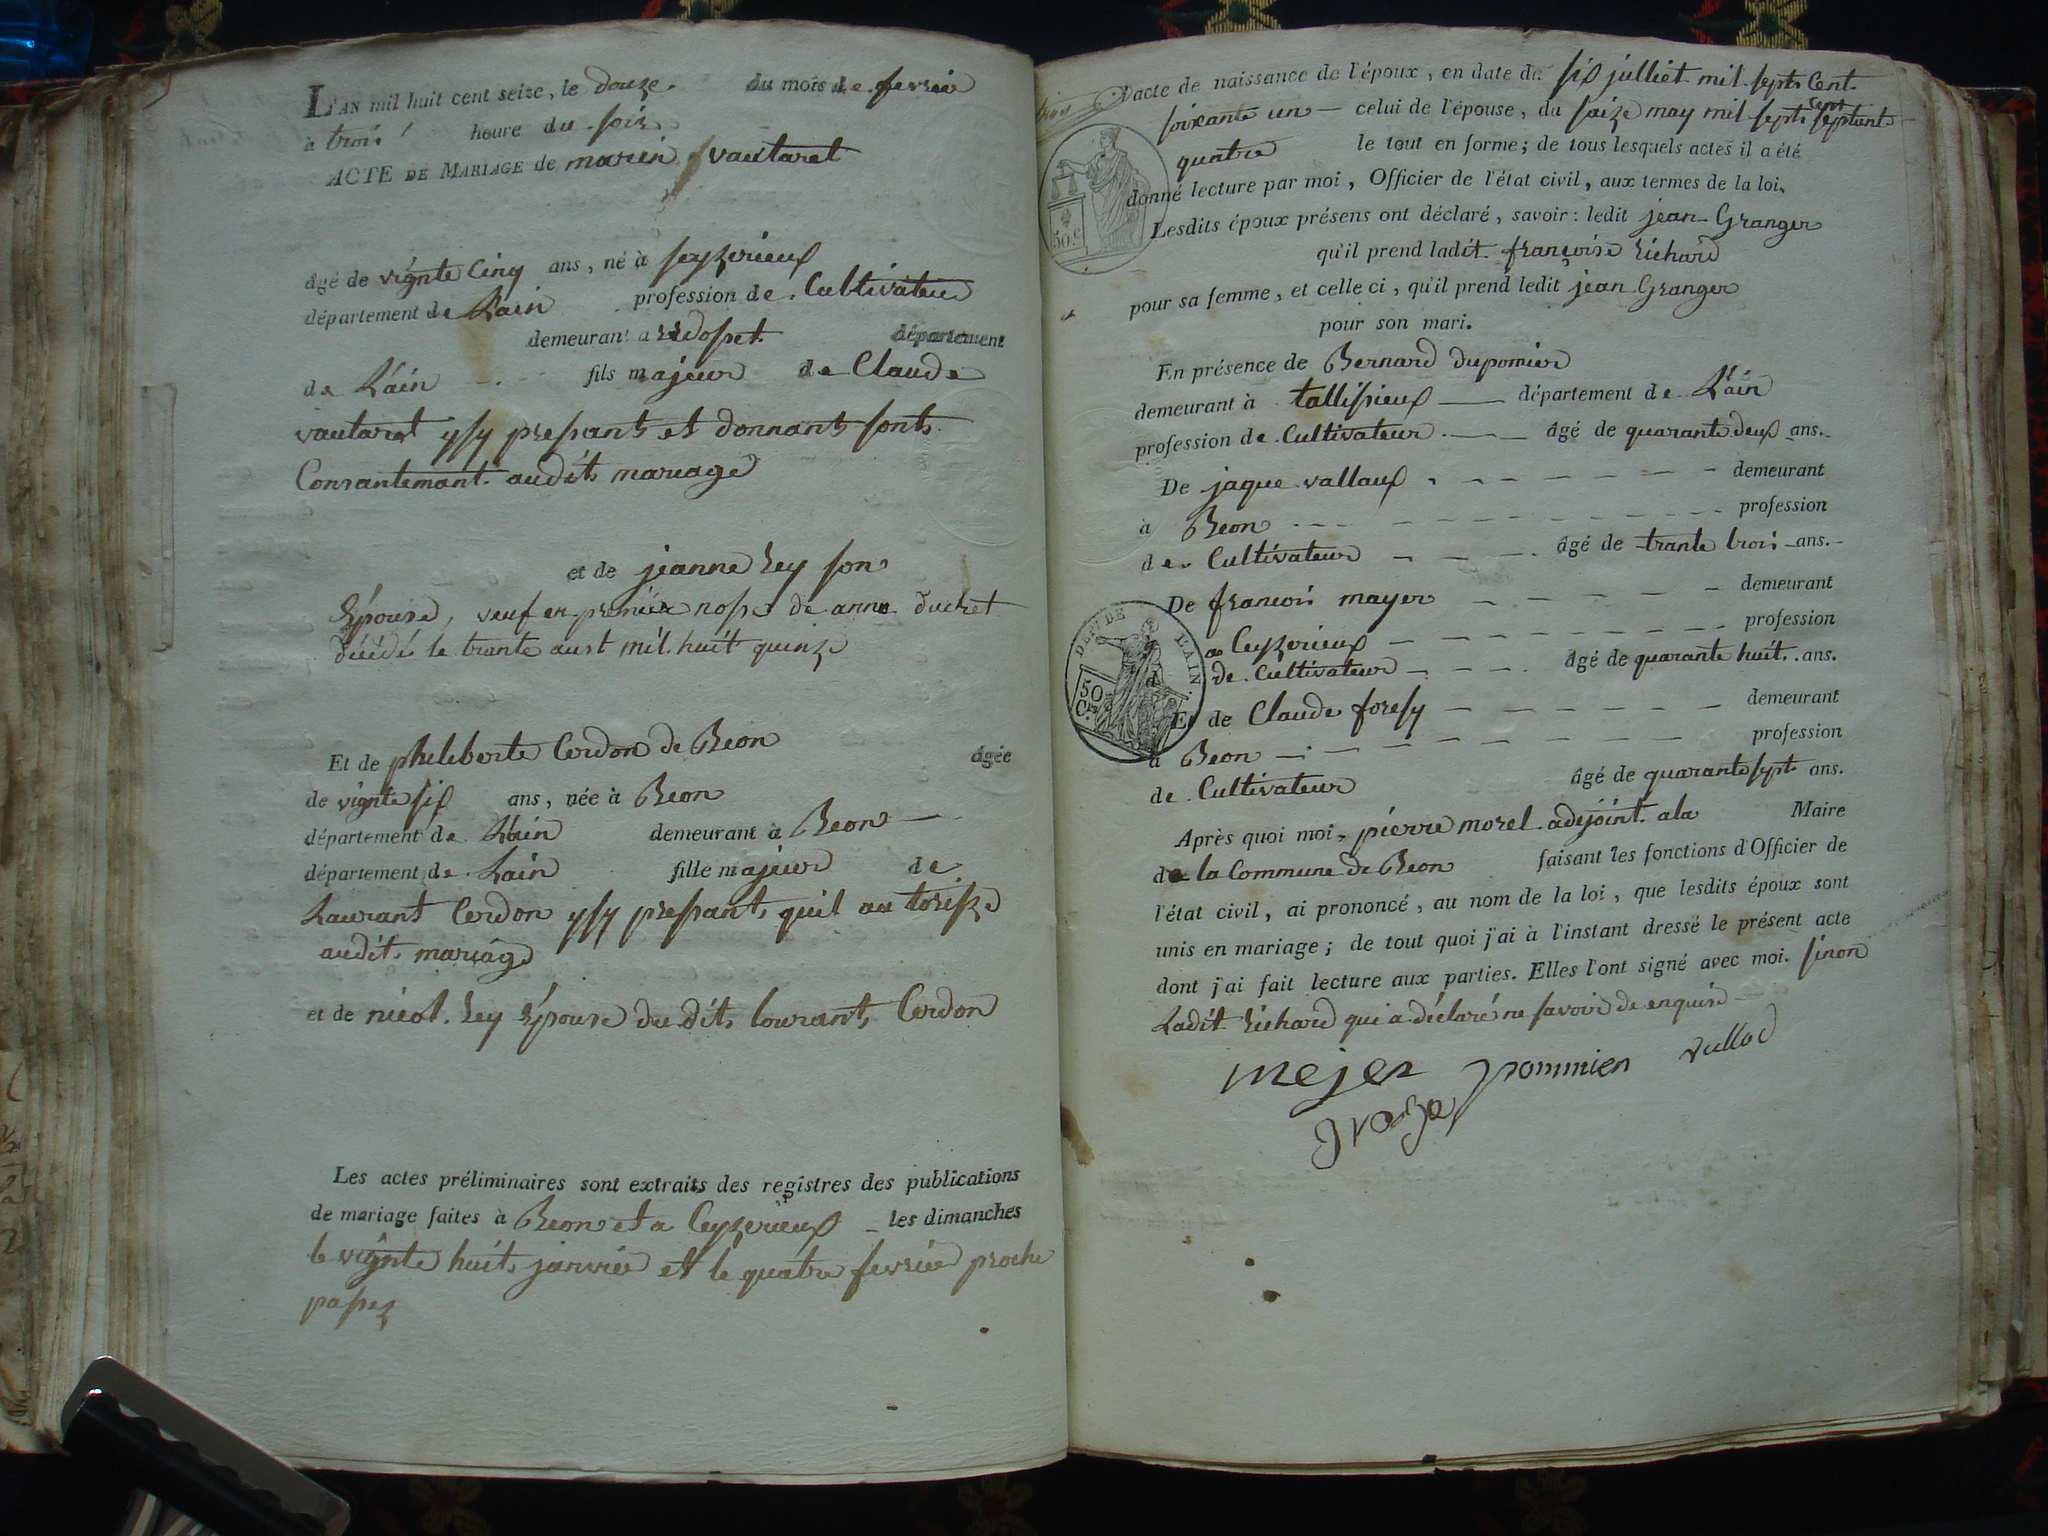 L'AN mil huit cent seize, le douze du mois de fevrié
à trois heure du soir
ACTE DE MARIAGE de marin vautaret
âgé de vignte Cinq ans, né à seyzerieux
département de Lain profession de Cultivateur
demeurant a département
de Lain fils majeur de Claude
vautaret ysy pressants et donnants sonts
Consantemant audits mariage
et de jeanne Rey son
Epouse, veuf en premier nosse de anne duchet
décédé le trante aust mil huit quinze
Et de phileberte Cerdon de Beon âgée
de vignte six ans, née à Beon
département de Lain demeurant à Beon
département de Lain fille majeur de
Laurant Cerdon ysy pressants quil autorisze
audits mariage
et de nicol. Rey Epouse du dits lourants Cerdon
Les actes préliminaires sont extraits des registres des publications
de mariage faites à Beon et a Ceyzerieux les dimanches
le vignte huits janvier et le quatre fevrié proche
passez
l'acte de naissance de l'époux, en date du six julliet mil septs Cent
soixante un celui de l'épouse, du saize may mil septs cent septante
quatre le tout en forme; de tous lesquels actes il a été
donné lecture par moi, Officier de l'état civil, aux termes de la loi.
50.c
Lesdits époux présens ont déclaré, savoir: ledit jean Granger
qu'il prend ladit françoise Richard
pour sa femme, et celle ci, qu'il prend ledit jean Granger
pour son mari.
En présence de Bernard dupomier
demeurant à tallissieux département de Lain
profession de Cultivateur âgé de quarante deux ans.
De jaque vallaux demeurant
à Beon profession
de Cultivateur âgé de trante trois ans.
De francois mayer demeurant
a Ceyzerieux profession
de Cultivateur âgé de quarante huit ans.
DEPT DE L'AIN.
50 C.
Et de Claude foresy demeurant
à Beon profession
de Cultivateur âgé de quarante sept ans.
Après quoi moi, pierre morel adejoint ala Maire
de la Commune de Beon faisant les fonctions d'Officier de
l'état civil, ai prononcé, au nom de la loi, que lesdits époux sont
unis en mariage; de tout quoi j'ai à l'instant dressé le présent acte
dont j'ai fait lecture aux parties. Elles l'ont signé avec moi. sinon
Ladit Richard qui a déclaré ne savoir de enquise
mejer pommier vullod